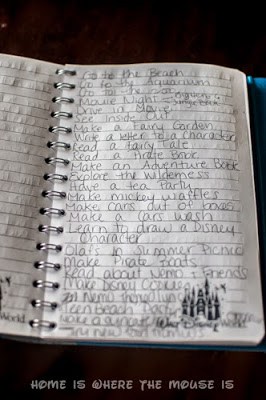 Go to the Beach
Go to the Aquarium
Go to the Zoo
Movie Night -
Drive in Movie
See Inside Out
Make a Fairy Garden
Write a letter to a character
Read a Fairy Tale
Read a Pirate Book
Make an Adventure Book
Explore the Wilderness
Have a Tea Party
Make mickey waffles
Make Cars out of boxes
Make a Cars wash
Learn to draw a Disney
Character
Olafs in Summer Picnic
Make Pirate Boats
Read about Nemo + Friends
Make Disney Cookies
Nemo
Teen Beach
Make a
Walt Disney World
HOME IS WHERE THE MOUSE IS